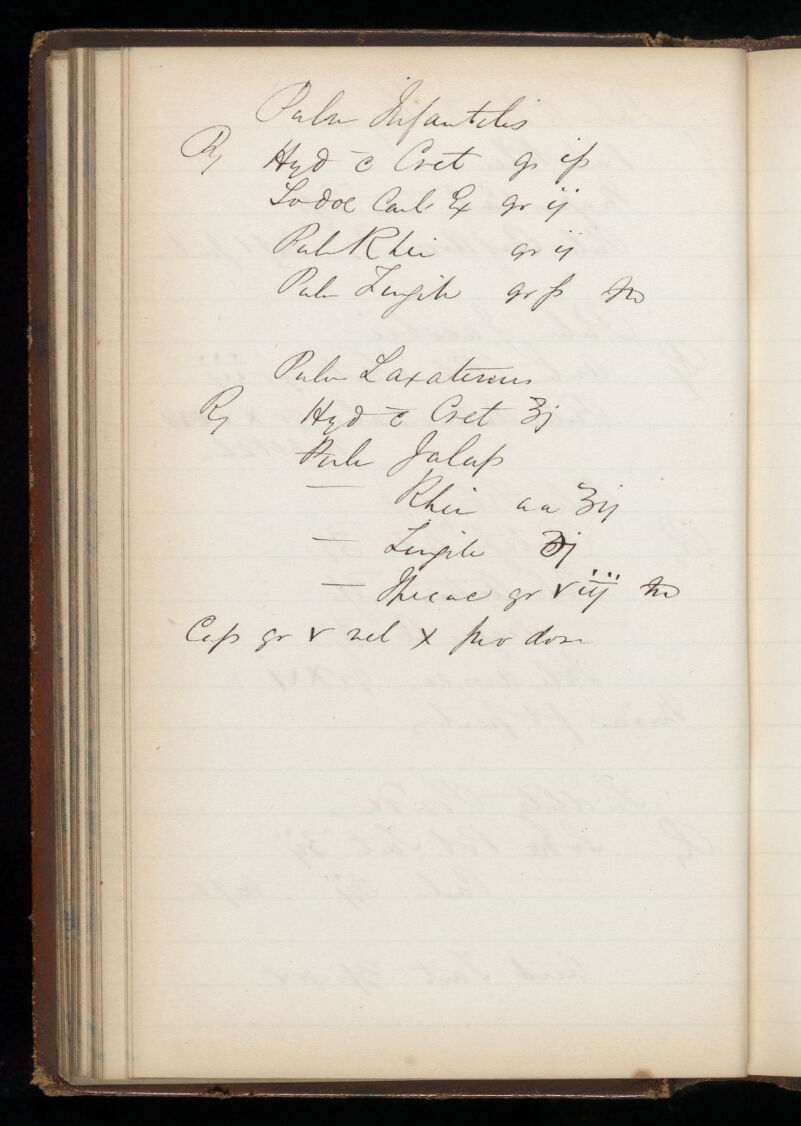 Pulv Infantilis
℞ Hyd c̄ Cret gr iß
Sodae Carb Ex gr ij
Pulv Rhei gr ij
Pulv Zingib gr ß M
Pulv Laxativus
℞ Hyd c̄ Cret ʒj
Pulv Jalap
— Rhei aa ʒij
— Zingib ℈j
— Ipecac gr viij M
Cap gr v vel x pro dose